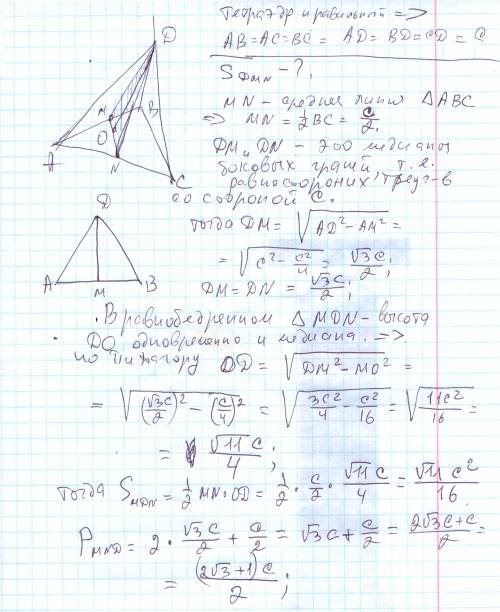 Тетраэдр правильный =>
AB=AC=BC= AD=BD=CD= C
S_DMN - ?,
MN - средняя линия ΔABC
=> MN = 1/2 BC = c/2,
DM и DN - это медианы
боковых граней, т.е.
равностороних треуг-в
со стороной C.
D
M
B
O
A
N
C
D
A
M
B
тогда DM = √(AD² - AM²) =
= √(c² - c²/4) = √3c/2;
DM = DN = √3c/2;
В равнобедренном Δ MDN - высота
DO одновременно и медиана. =>
по пифагору OD = √(DM² - MO²) =
= √((√3c/2)² - (c/4)²) = √(3c²/4 - c²/16) = √(11c²/16) =
= √11 c/4;
тогда S_MDN = 1/2 MN·OD = 1/2 · c/2 · √11c/4 = √11 c²/16
P_MND = 2 · √3c/2 + c/2 = √3c + c/2 = (2√3c+c)/2 =
= (2√3+1)c/2;